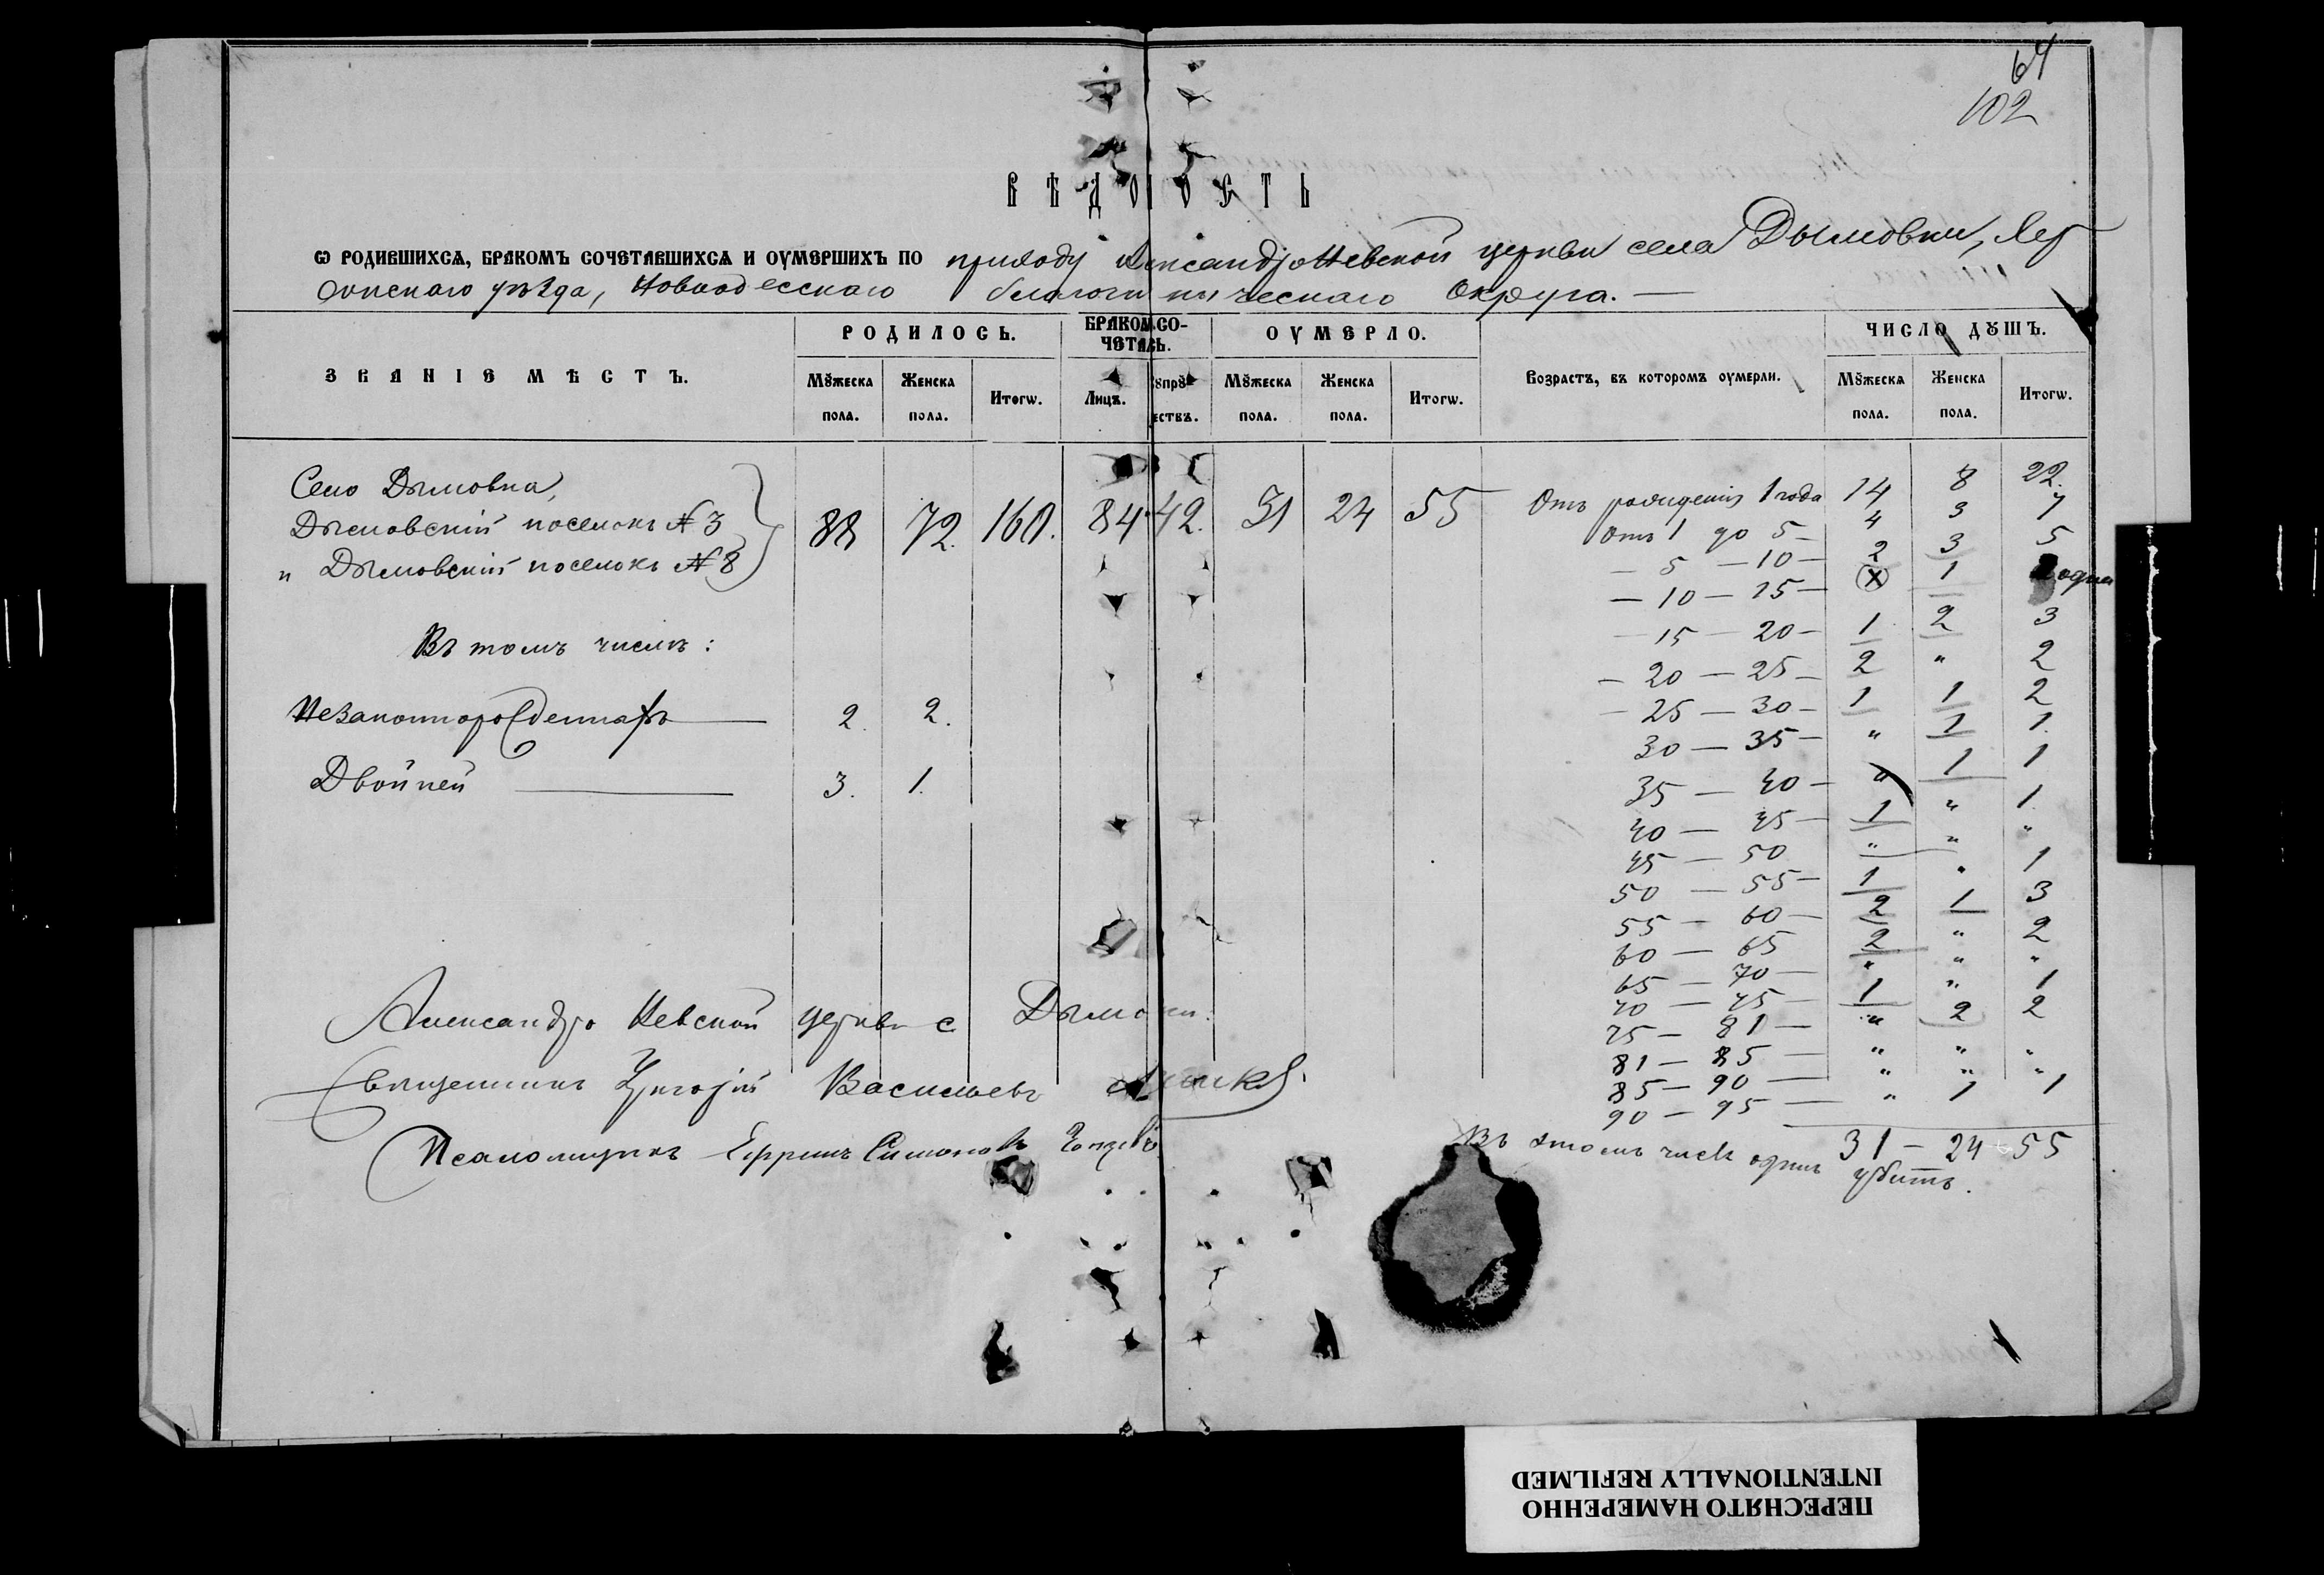 64
102
ВѢДОМОСТЬ
Ѡ РОДИВШИХСѦ, БРАКОМЪ СОЧЕТАВШИХСѦ И ОУМЕРШИХЪ ПО приходу Александро Невской церкви села Дымовки, Хер
сонскаго уѣзда, Новоодесскаго благочинническаго Округа. —
ЗВАНІЕ МѢСТЪ.
РОДИЛОСЬ.
БРАКОМ.СО-
ЧЕТАСЬ.
ОУМЕРЛО.
Возрастъ, въ которомъ оумерли.
ЧИСЛО ДꙊШЪ.
Мꙋжеска пола. Женска пола. Итогѡ. Лицъ. Сꙋпрꙋжествъ. Мꙋжеска пола. Женска пола. Итогѡ. Мꙋжеска пола. Женска пола. Итогѡ.
Село Дымовка,
Дымовскій поселокъ № 3
и Дымовскій поселокъ № 8
88 72. 160. 84 42. 31 24 55
Въ томъ числѣ:
Незаконнорожденныхъ — 2. 2.
Двойней — 3. 1.
Отъ рожденія 1 года 14 8 22.
Отъ 1 до 5 — 4 3 7
— 5 — 10 — 2 3 5
— 10 — 15 — X 1 одна
— 15 — 20 — 1 2 3
— 20 — 25 — 2 " 2
— 25 — 30 — 1 1 2
30 — 35 — " 1 1.
35 — 40 — " 1 1
40 — 45 — 1 " 1.
45 — 50 " " "
50 — 55 — 1 " 1
55 — 60 — 2 1 3
60 — 65 2 " 2
65 — 70 — " " "
70 — 75 — 1 " 1
75 — 81 — " 2 2
81 — 85 — " " "
85 — 90 — " " "
90 — 95 — " 1 1
31 — 24 — 55
Въ этомъ числѣ одинъ убитъ.
Александро Невской церкви с. Дымовки.
Священникъ Григорій Васильевъ
Псаломщикъ Ефримъ Симоновъ
INTENTIONALLY REFILMED
ПЕРЕСНЯТО НАМЕРЕННО